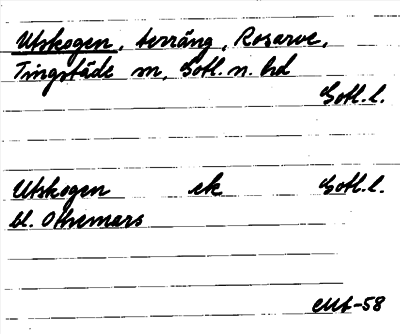 Utskogen, terräng, Rosarve,
Tingstäde sn, Gotl. n. hd
Gotl. l.
Utskogen ek Gotl. l.
bl. Othemars
-58